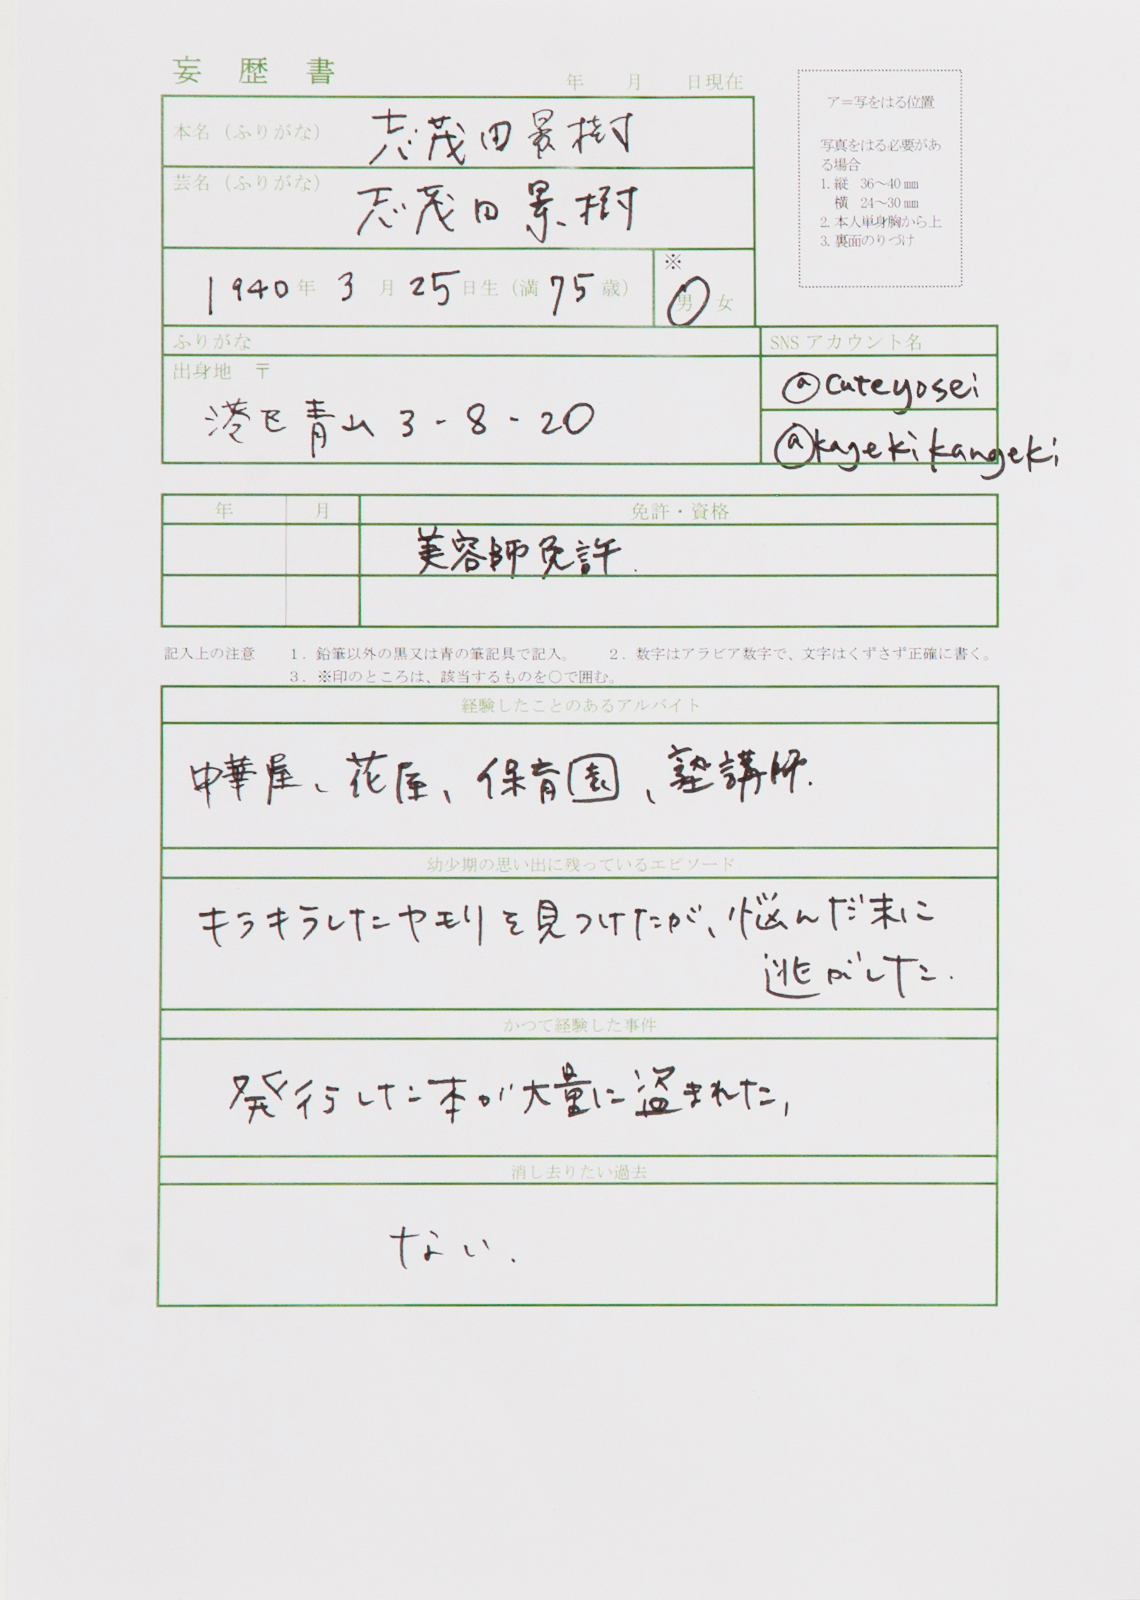 妄歴書
年 月 日現在
ア＝写をはる位置
写真をはる必要があ
る場合
1. 縦 36〜40㎜
横 24〜30㎜
2. 本人単身胸から上
3. 裏面のりづけ
本名（ふりがな） 志茂田景樹
芸名（ふりがな） 志茂田景樹
1940年 3月 25日生（満 75歳） ※ 男・女
ふりがな
SNS アカウント名
出身地 〒
@cuteyosei
港区青山3-8-20
@kagekikangeki
年 月 免許・資格
美容師免許.
記入上の注意 1．鉛筆以外の黒又は青の筆記具で記入。 2．数字はアラビア数字で、文字はくずさず正確に書く。
3．※印のところは、該当するものを○で囲む。
経験したことのあるアルバイト
中華屋、花屋、保育園、塾講師.
幼少期の思い出に残っているエピソード
キラキラしたヤモリを見つけたが、悩んだ末に
逃がした.
かつて経験した事件
発行した本が大量に盗まれた,
消し去りたい過去
ない.